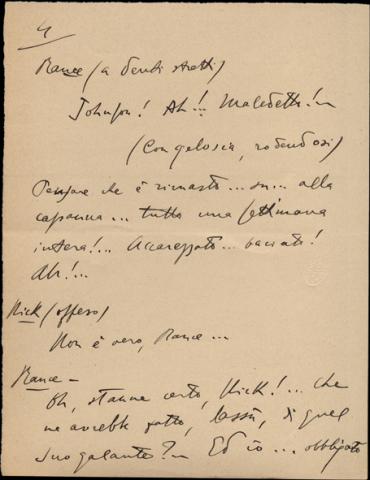 4
Rance (a denti stretti)
Johnson! Ah!! Maledetto!...
(Con gelosia, rodendosi)
Pensare che è rimasto... su... alla
capanna... tutta una settimana
intera!... Accarezzato... baciato!
Ah!...
Nick (offeso)
Non è vero, Rance...
Rance -
Oh, stanne certo, Nick!... Che
ne avrebbe fatto, lassù, di quel
suo galante?... Ed io... obbligato